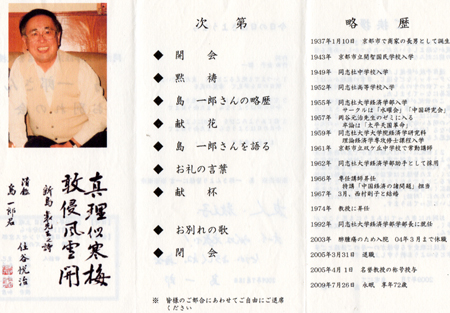 真理似寒梅
敢侵風雪開
新島襄先生之詩
清鑑
島 一郎君
住谷悦治
次 第
◆ 開 会
◆ 黙 祷
◆ 島 一郎さんの略歴
◆ 献 花
◆ 島 一郎さんを語る
◆ お礼の言葉
◆ 献 杯
◆ お別れの歌
◆ 閉 会
※ 皆様のご都合にあわせてご自由にご退席
ください
略 歴
1937年1月10日 京都市で商家の長男として誕生
1943年 京都市立開智国民学校入学
1949年 同志社中学校入学
1952年 同志社高等学校入学
1955年 同志社大学経済学部入学
サークルは「水曜会」「中国研究会」
1957年 岡谷元治先生のゼミに入る
卒論は「太平天国革命」
1959年 同志社大学大学院経済学研究科
理論経済学専攻修士課程入学
1961年 京都市立双ケ丘中学校で常勤講師
1962年 同志社大学経済学部助手として採用
1966年 専任講師昇任
持講「中国経済の諸問題」担当
1967年 3月、西村則子と結婚
1974年 教授に昇任
1992年 同志社大学経済学部学部長に就任
2003年 肺腫瘍のため入院 04年3月まで休職
2005年3月31日 退職
2005年4月1日 名誉教授の称号授与
2009年7月26日 永眠 享年72歳